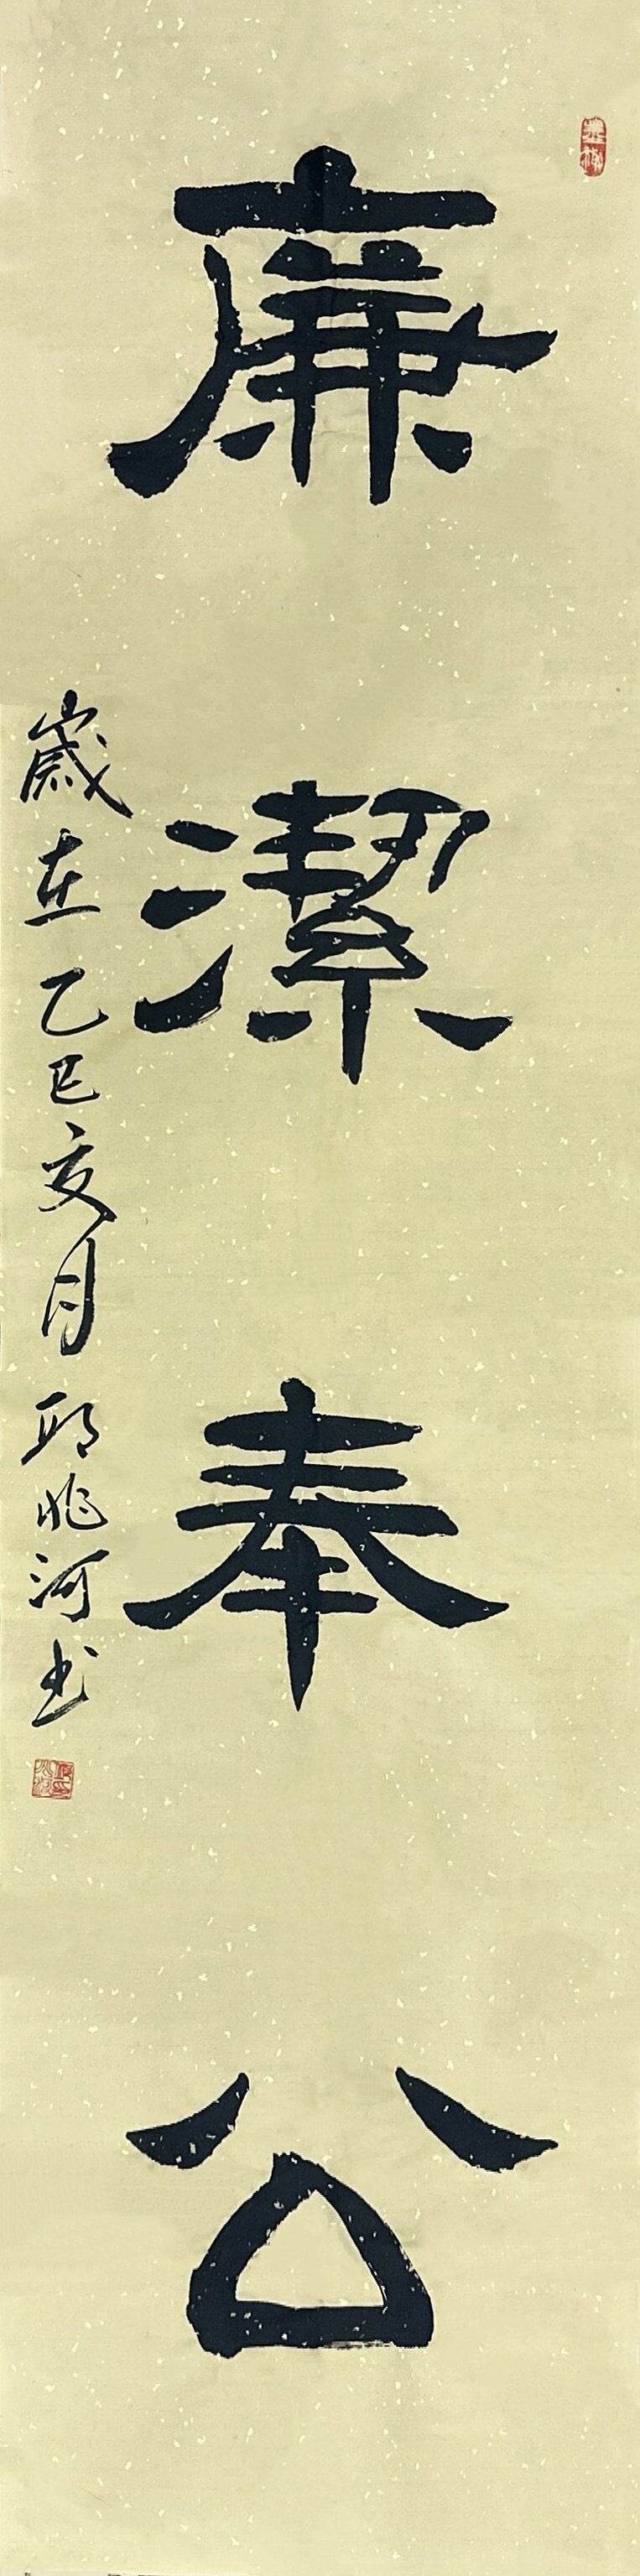 廉潔奉公
歲在乙巳亥月邱兆河书